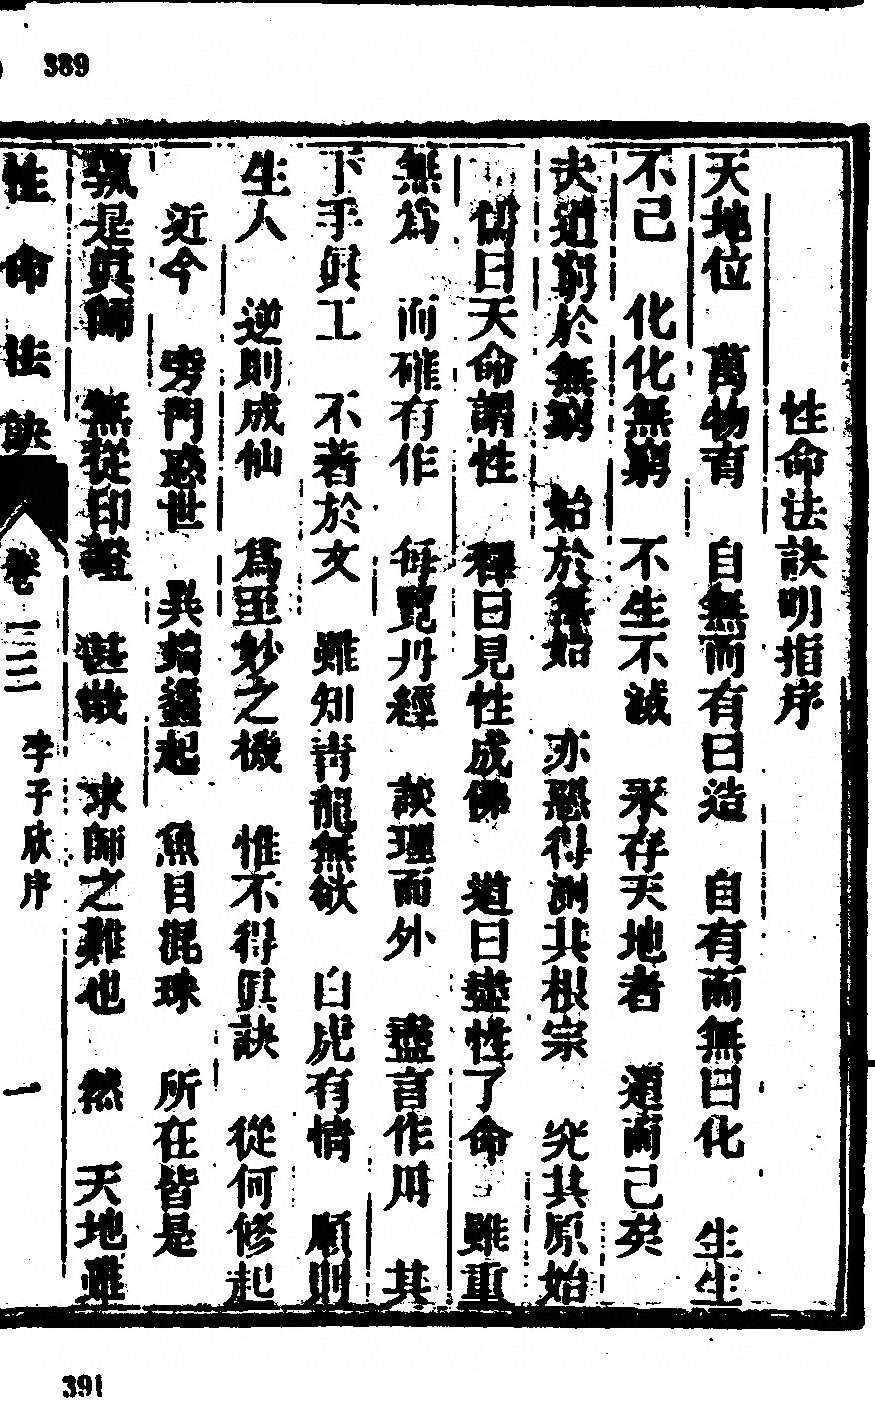 389
性命法訣明指序
天地位 萬物育 自無而有曰造 自有而無曰化 生生
不已 化化無窮 不生不滅 永存天地者 道而已矣
夫道窮於無窮 始於無始 亦惡得測其根宗 究其原始
儒曰天命謂性 釋曰見性成佛 道曰盡性了命 雖重
無爲 而確有作 每覽丹經 談理而外 盡言作用 其
下手眞工 不著於文 雖知靑龍無欲 白虎有情 順則
生人 逆則成仙 爲至妙之機 惟不得眞訣 從何修起
近今 旁門惑世 異端蠭起 魚目混珠 所在皆是
孰是眞師 無從印證 甚哉 求師之難也 然 天地雖
性命法訣
卷一二三 李子欣序 一
391